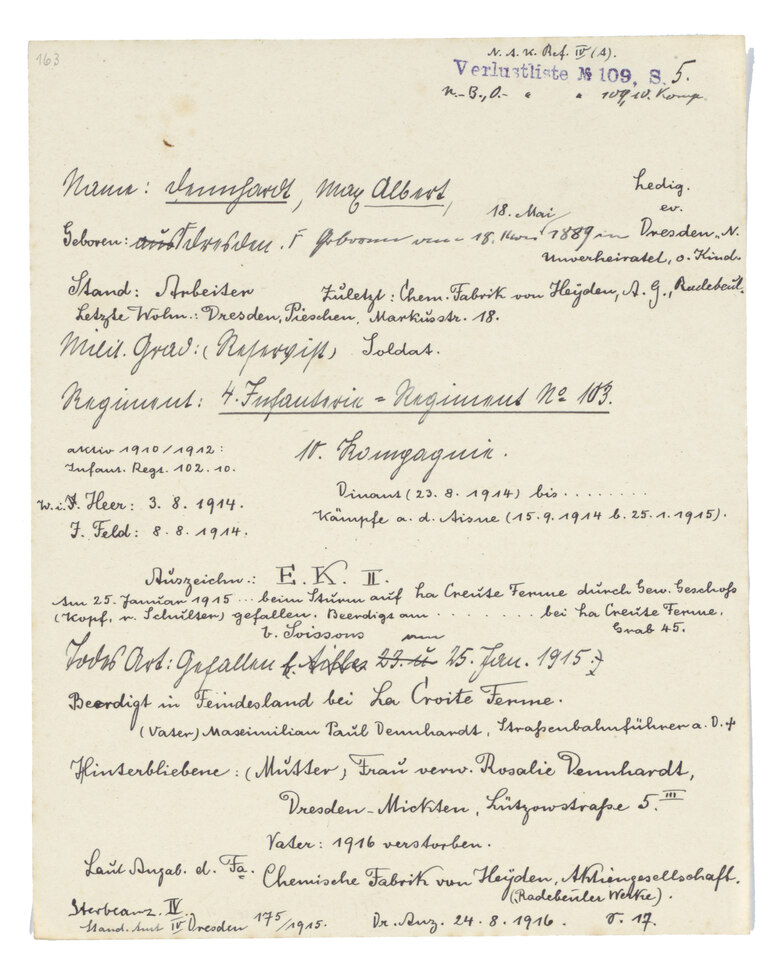 163
N. A. K. Ref. IV (A).
Verlustliste № 109, S. 5.
N.-B., O.- " " 109, 10. Komp.
Name: Dennhardt, Max Albert,
Ledig.
ev.
18. Mai
Geboren: aus Dresden. geboren am 18. 1889 in Dresden-N.
Unverheiratet, o. Kind.
Stand: Arbeiter Zuletzt: Chem. Fabrik von Heyden, A. G., Radebeul.
Letzte Wohn.: Dresden, Pieschen, Markusstr. 18.
Milit. Grad: (Reservist) Soldat.
Regiment: 4. Infanterie = Regiment No 103.
aktiv 1910/1912:
Infant. Regt. 102. 10.
10. Kompagnie.
W. i. J. Heer: 3. 8. 1914.
J. Feld: 8. 8. 1914.
Dinant (23. 8. 1914) bis ........
Kämpfe a. d. Aisne (15. 9. 1914 b. 25. 1. 1915).
Auszeichn.: E. K. II.
Am 25. Januar 1915 ... beim Sturm auf La Creute Ferme durch Gew. Geschoß
(Kopf, r. Schulter) gefallen. Beerdigt am ........ bei La Creute Ferme.
Grab 45.
b. Soissons am
Todes Art: Gefallen b. 23. u 25. Jan. 1915.
Beerdigt in Feindesland bei La Croite Ferme.
(Vater) Maximilian Paul Dennhardt, Straßenbahnführer a. D. †
Hinterbliebene: (Mutter) Frau verw. Rosalie Dennhardt,
Dresden-Mickten, Lützowstraße 5. III
Vater: 1916 verstorben.
Laut Angab. d. Fa. Chemische Fabrik von Heyden, Aktiengesellschaft.
(Radebeuler Werke).
Sterbeanz. IV
Stand. Amt IV Dresden 175/1915. Dr. Anz. 24. 8. 1916. S. 17.